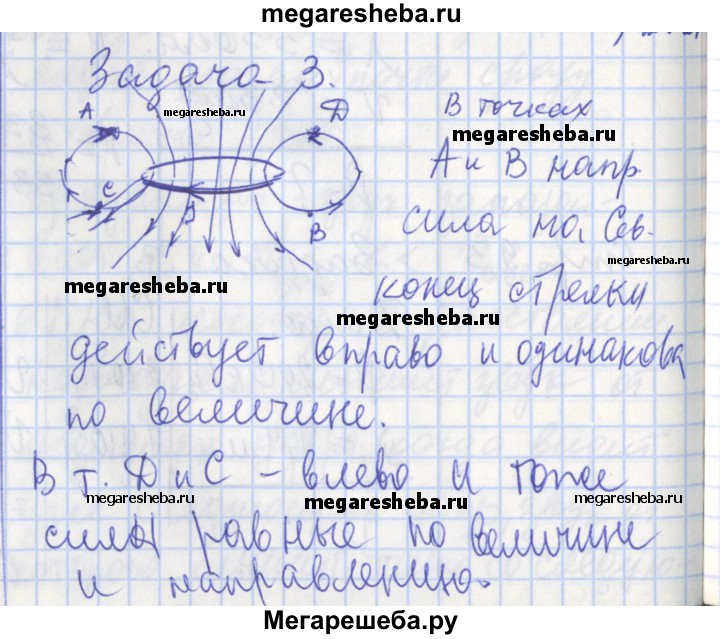 megaresheba.ru
Задача 3.
A
megaresheba.ru
D
В точках
megaresheba.ru
А и В напр.
C
J
B
сила на Сев.
megaresheba.ru
megaresheba.ru
конец стрелки
megaresheba.ru
действует вправо и одинакова
по величине.
В т. D и C – влево и тоже
megaresheba.ru
megaresheba.ru
megaresheba.ru
силы равные по величине
и направлению.
Мегарешеба.ру